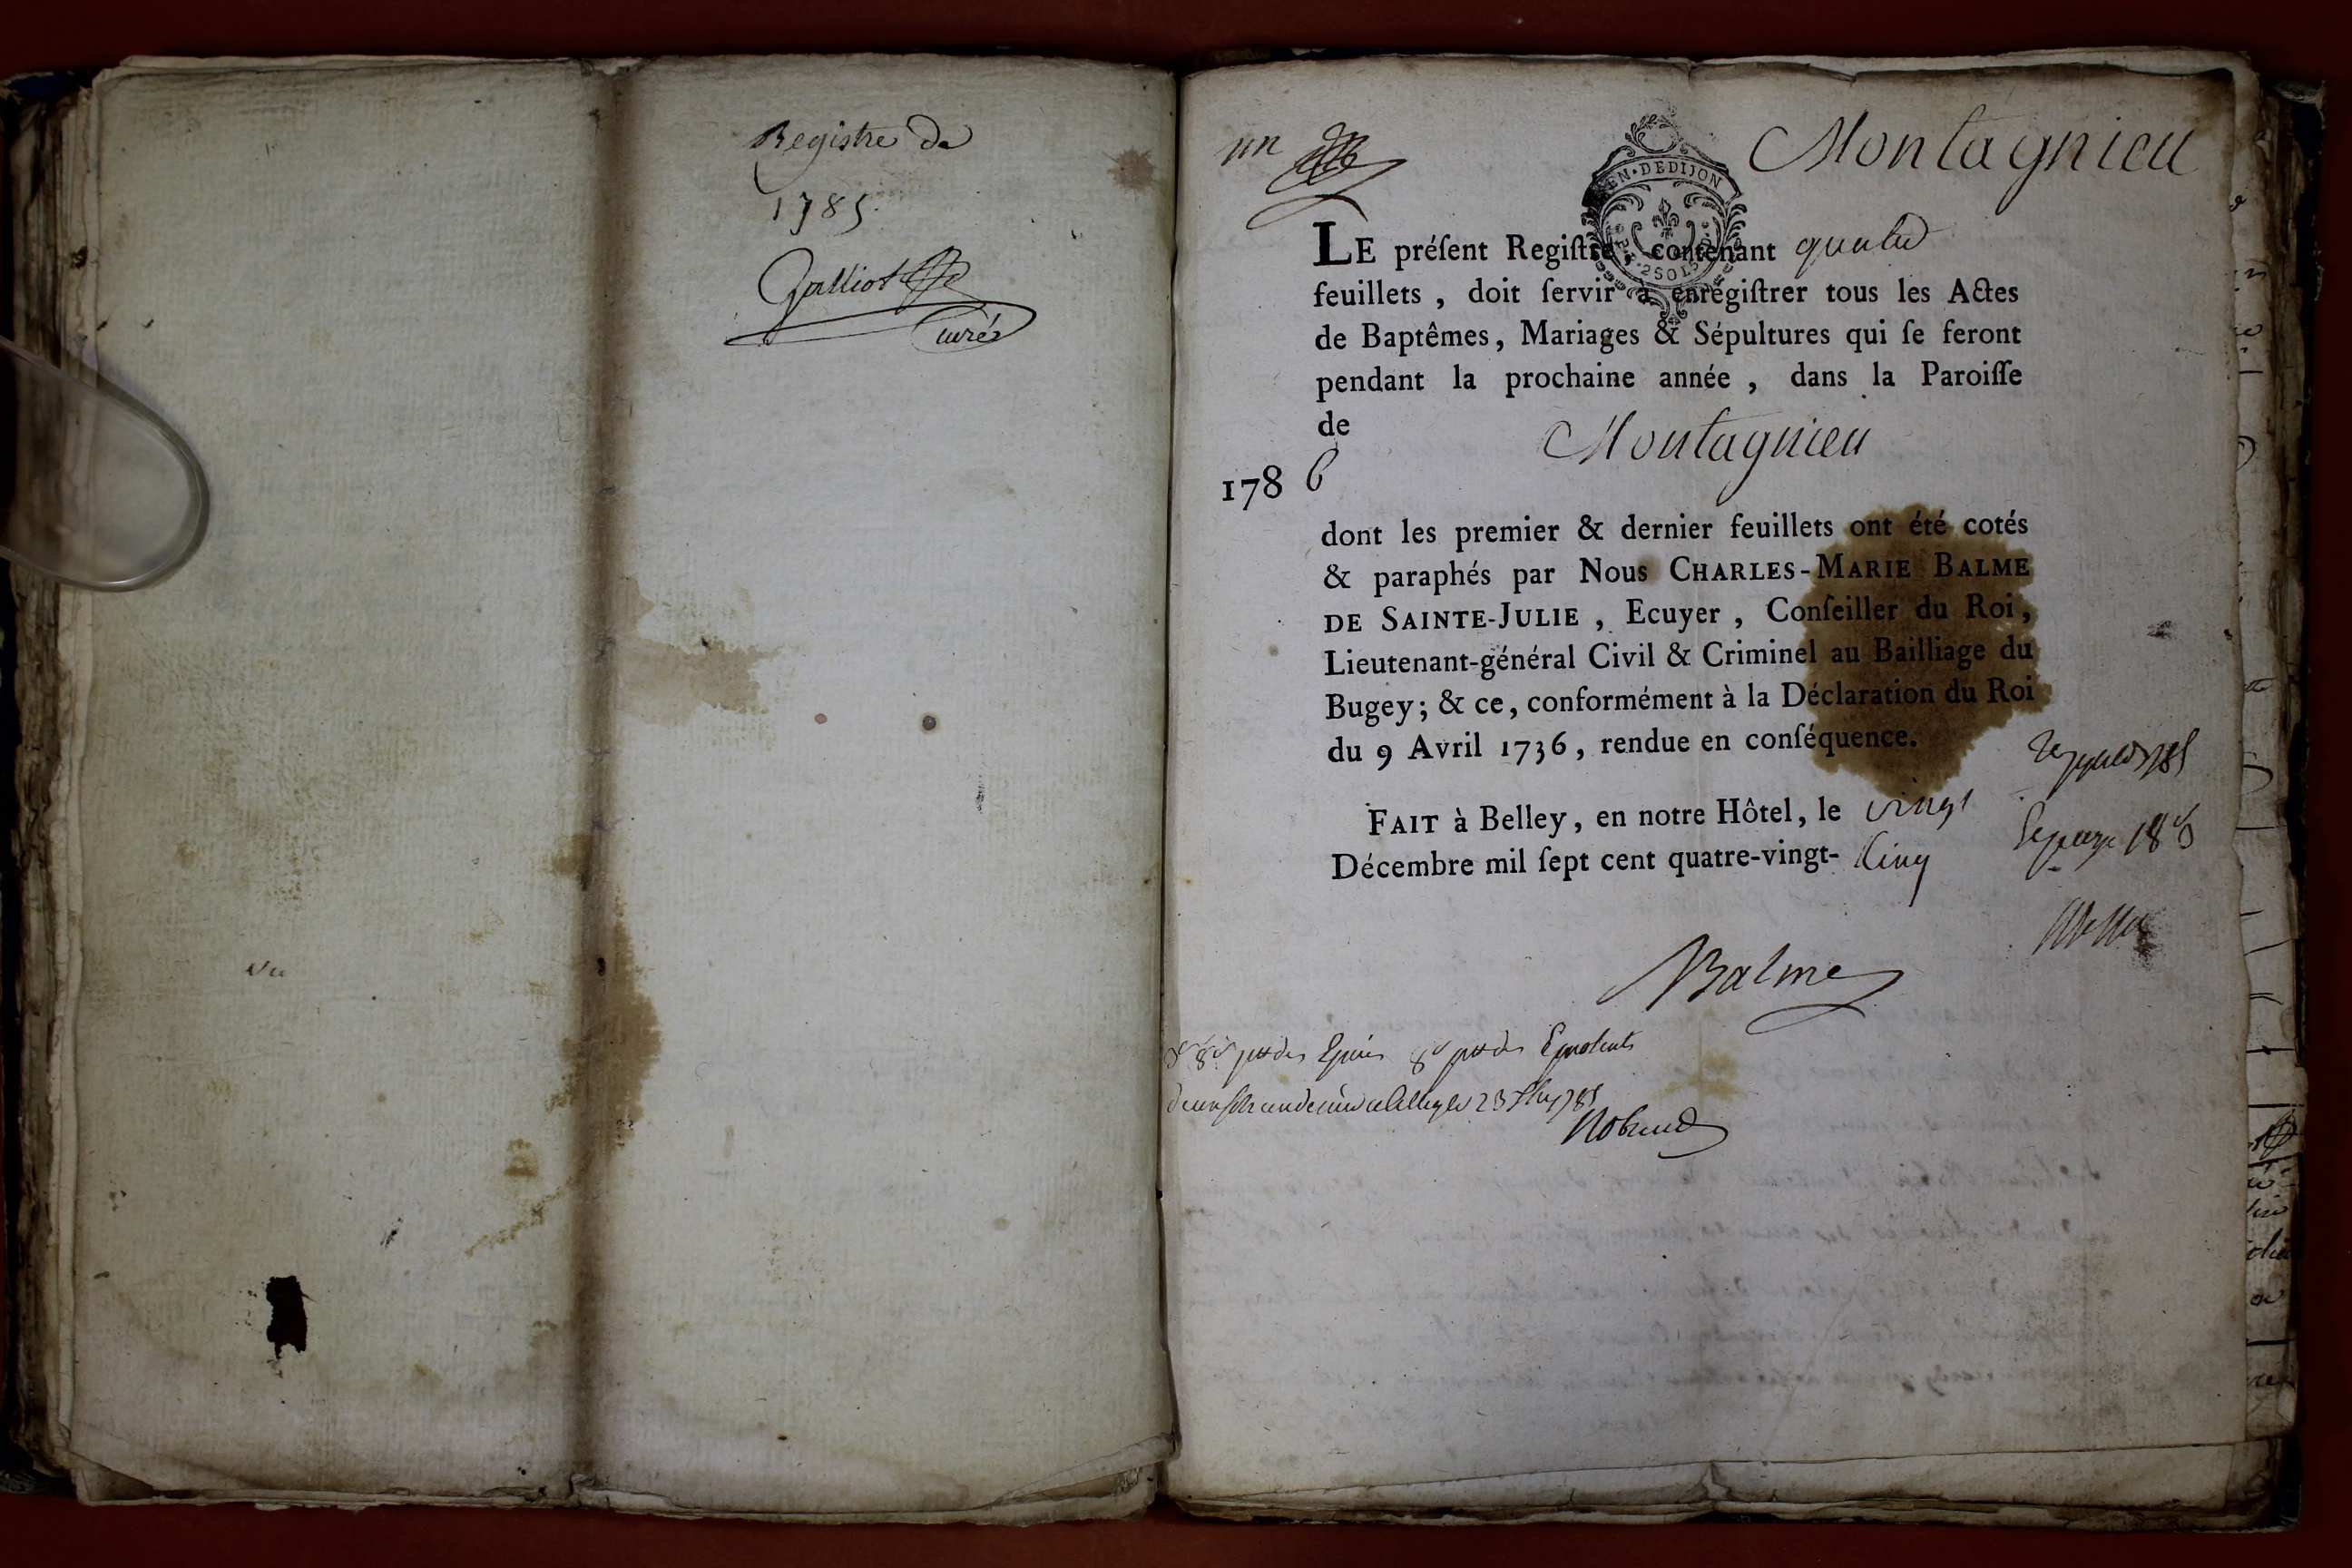 Registre de
1785.
Galliot
curé
un
Montagnieu
EN·DEDIJON
2SOLS
LE préſent Regiſtre, contenant quatre
feuillets, doit ſervir à enregiſtrer tous les Actes
de Baptêmes, Mariages & Sépultures qui ſe feront
pendant la prochaine année, dans la Paroiſſe
de Montagnieu
1786
dont les premier & dernier feuillets ont été cotés
& paraphés par Nous CHARLES-MARIE BALME
DE SAINTE-JULIE, Ecuyer, Conſeiller du Roi,
Lieutenant-général Civil & Criminel au Bailliage du
Bugey; & ce, conformément à la Déclaration du Roi
du 9 Avril 1736, rendue en conſéquence.
FAIT à Belley, en notre Hôtel, le vingt
Décembre mil ſept cent quatre-vingt-cinq
Balme